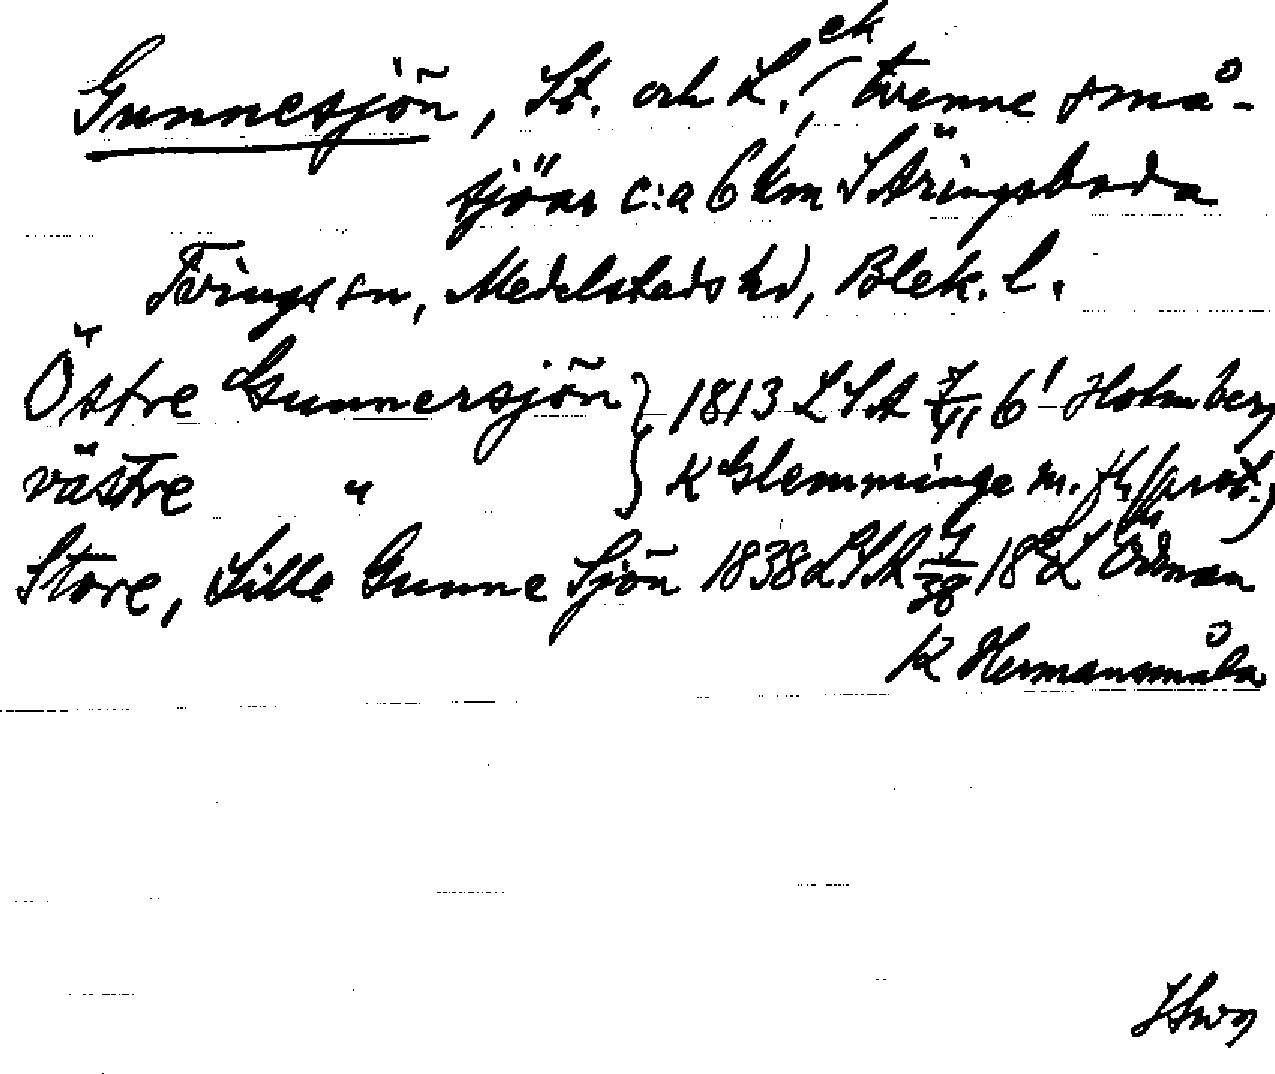 Gunnesjön, St. och L., ek tvenne små-
sjöar c:a 6 km S Äringsboda
Tvings sn, Medelstads hd, Blek. l.
Östre Gunnersjön } 1813 LSA 7/VI 6¹ Holmberg
västre " } K Glemminge m. fl. (prot.)
Store, Lille Gunne Sjön 1838 LSA 7/38 18 L Ödman
K Hermansmåla